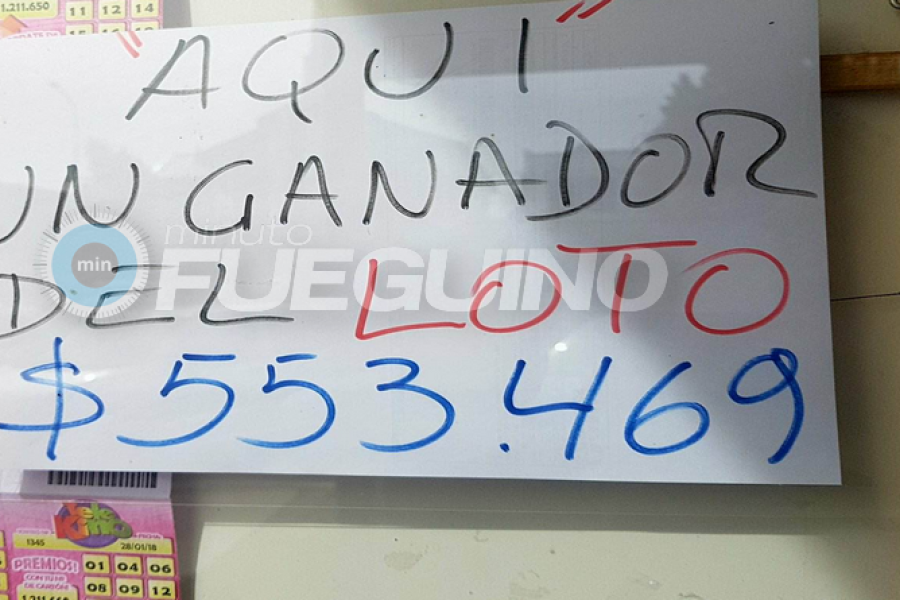 1.211.650
11 12 14
"AQUI"
UN GANADOR
DEL LOTO
$ 553.469
minuto
min
FUEGUINO
Tele
Kino
1345
28/01/18
PREMIOS!
01 04 06
08 09 12